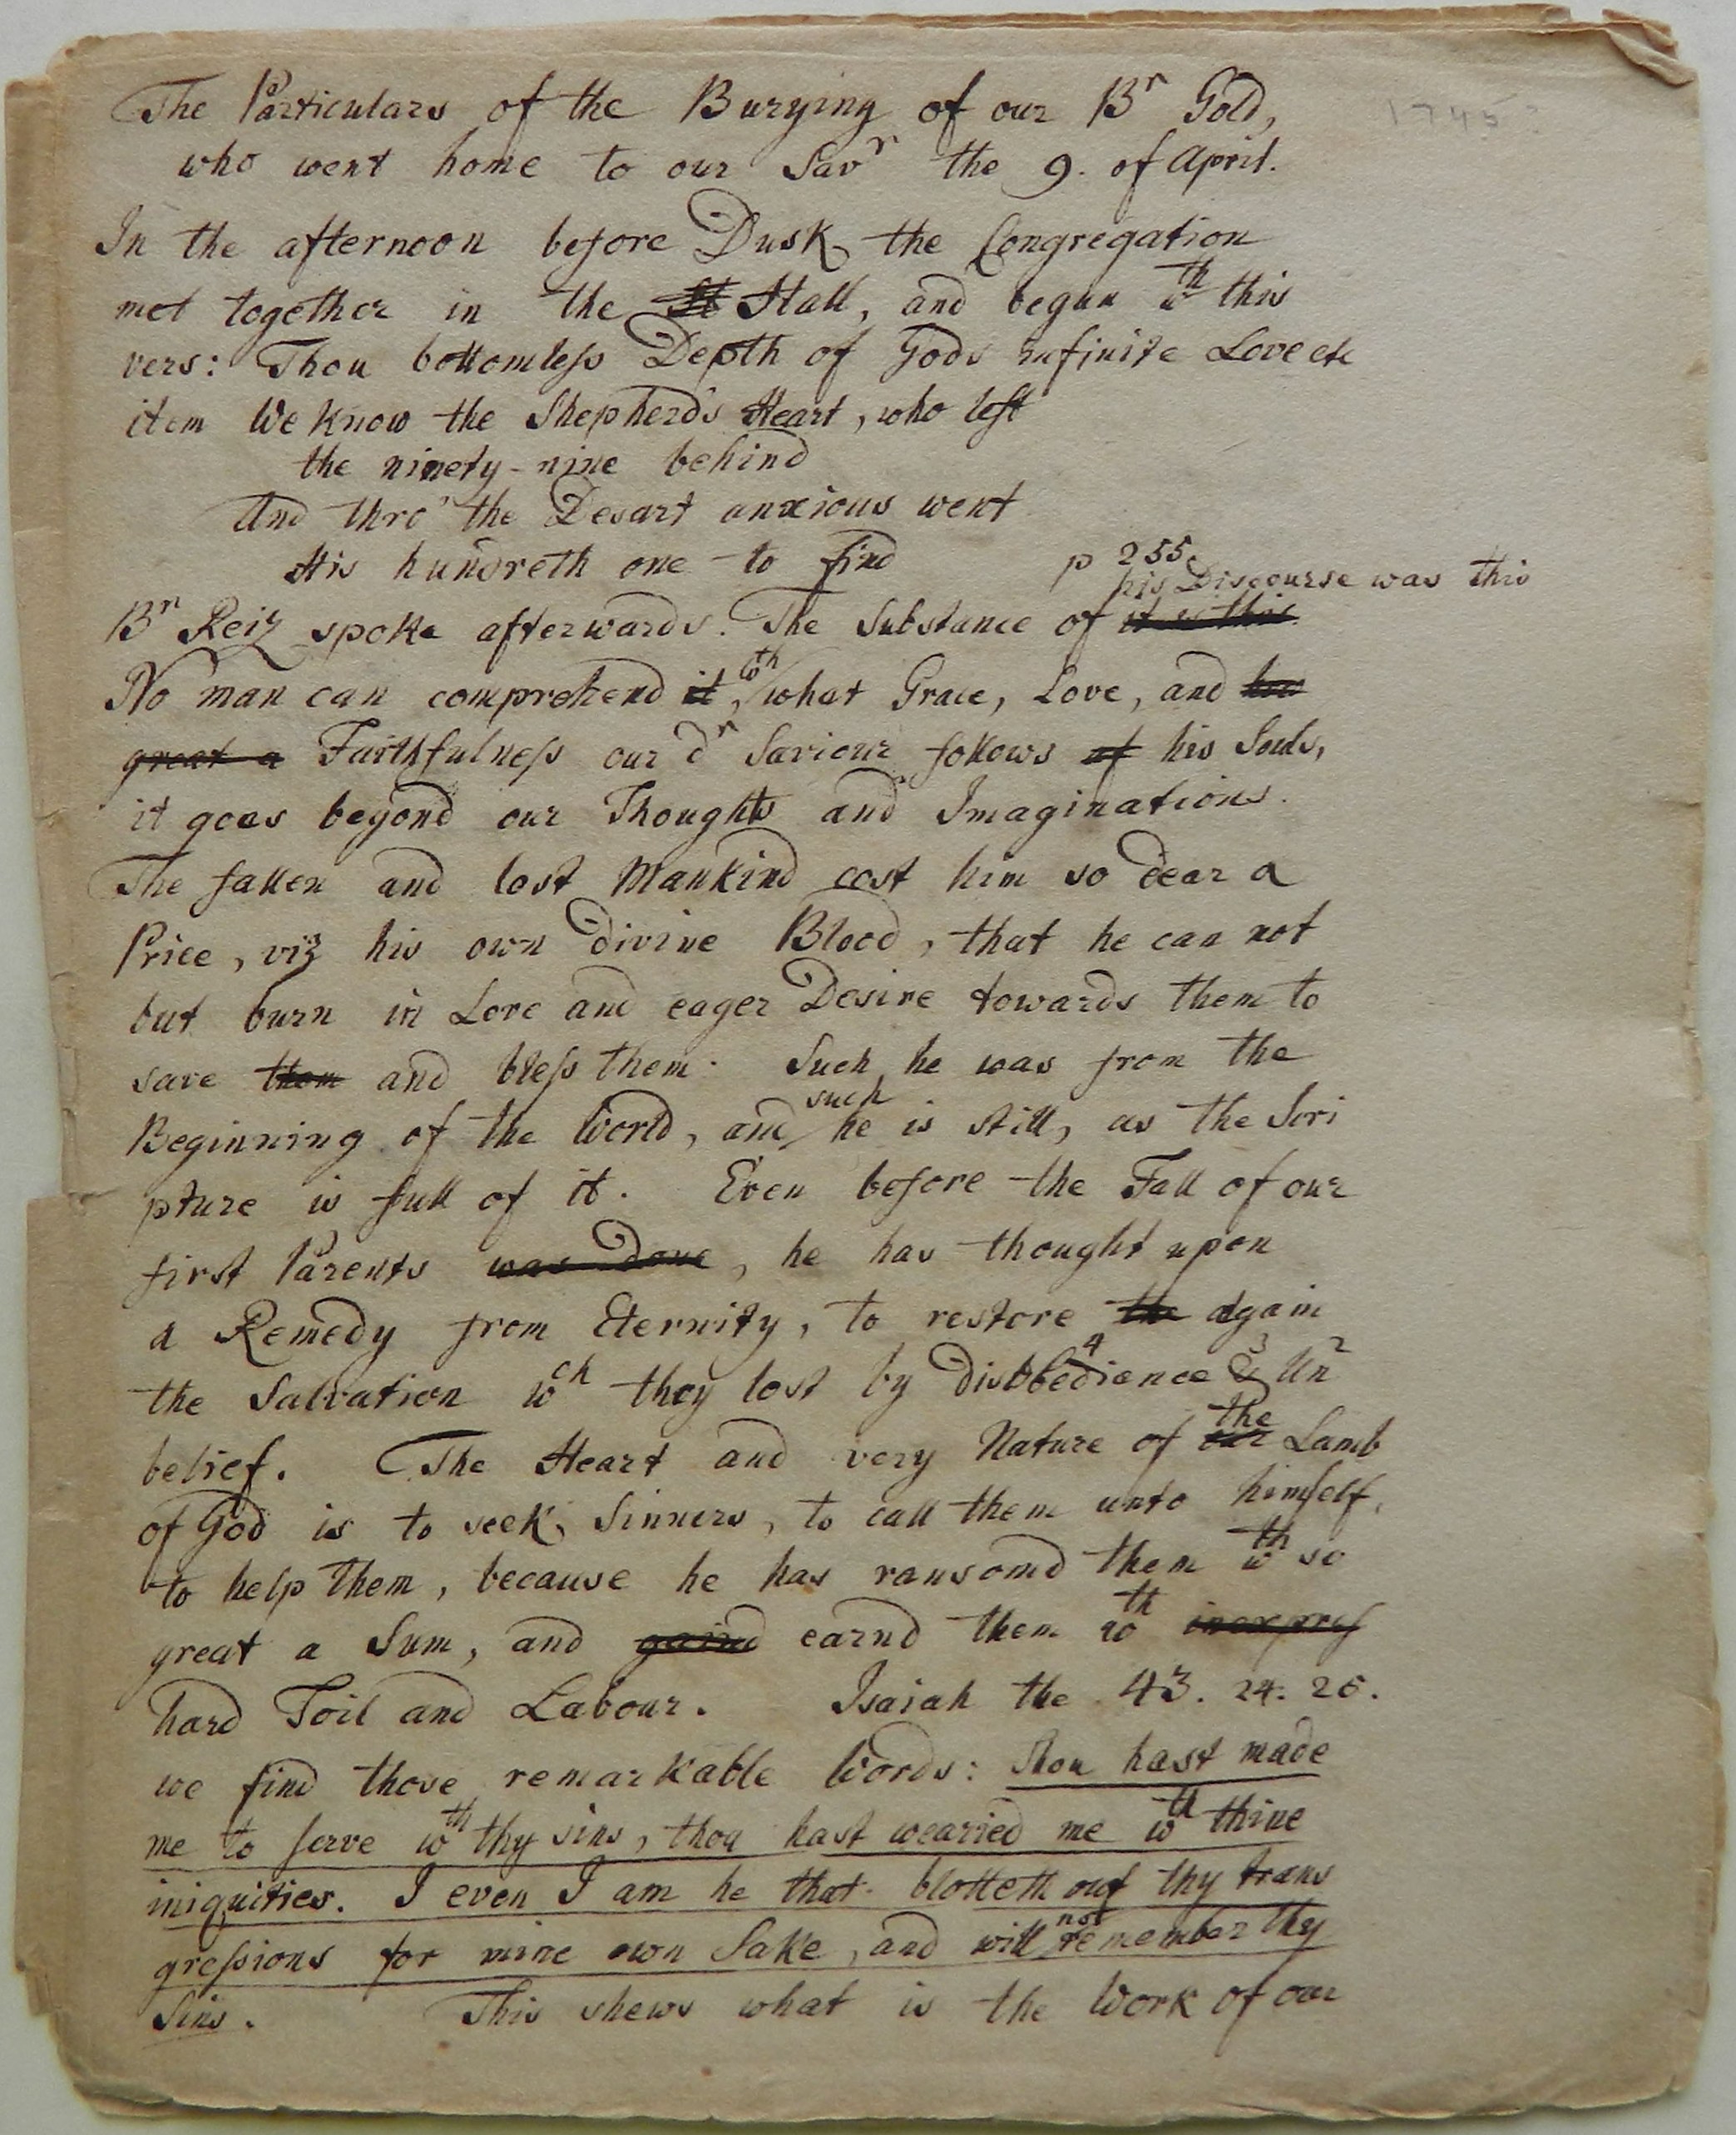 The Particulars of the Burying of our Br Gold,
1745?
who went home to our Savr the 9. of April.
In the afternoon before Dusk the Congregation
met together in the Hall, and begun wth this
vers: Thou bottomless Depth of Gods infinite Love etc
item We know the Shepherds Heart, who left
the ninety-nine behind
And thro' the Desart anxious went
His hundreth one to find p 255.
his Discourse was this
Br Reiz spoke afterwards. The Substance of it is this.
No man can comprehend it, wth what Grace, Love, and how
great a Faithfulness our dr Saviour follows of his Souls,
it goes beyond our Thoughts and Imaginations.
The fallen and lost Mankind cost him so dear a
Price, viz his own divine Blood, that he can not
but burn in Love and eager Desire towards them to
save them and bless them. Such he was from the
Beginning of the World, and such he is still, as the Scri
pture is full of it. Even before the Fall of our
first Parents was done, he has thought upon
a Remedy from Eternity, to restore the again
the Salvation wch they lost by disobedience 4 & 3 Un 2
belief. The Heart and very Nature of our the Lamb
of God is to seek Sinners, to call them unto himself,
to help them, because he has ransomd them wth so
great a Sum, and gaind earnd them wth inexpress
hard Toil and Labour. Isaiah the 43. 24. 25.
we find those remarkable Words: Thou hast made
me to serve wth thy sins, thou hast wearied me wth thine
iniquities. I even I am he that blotteth out thy trans
gressions for mine own Sake, and will not remember thy
Sins. This shews what is the Work of our